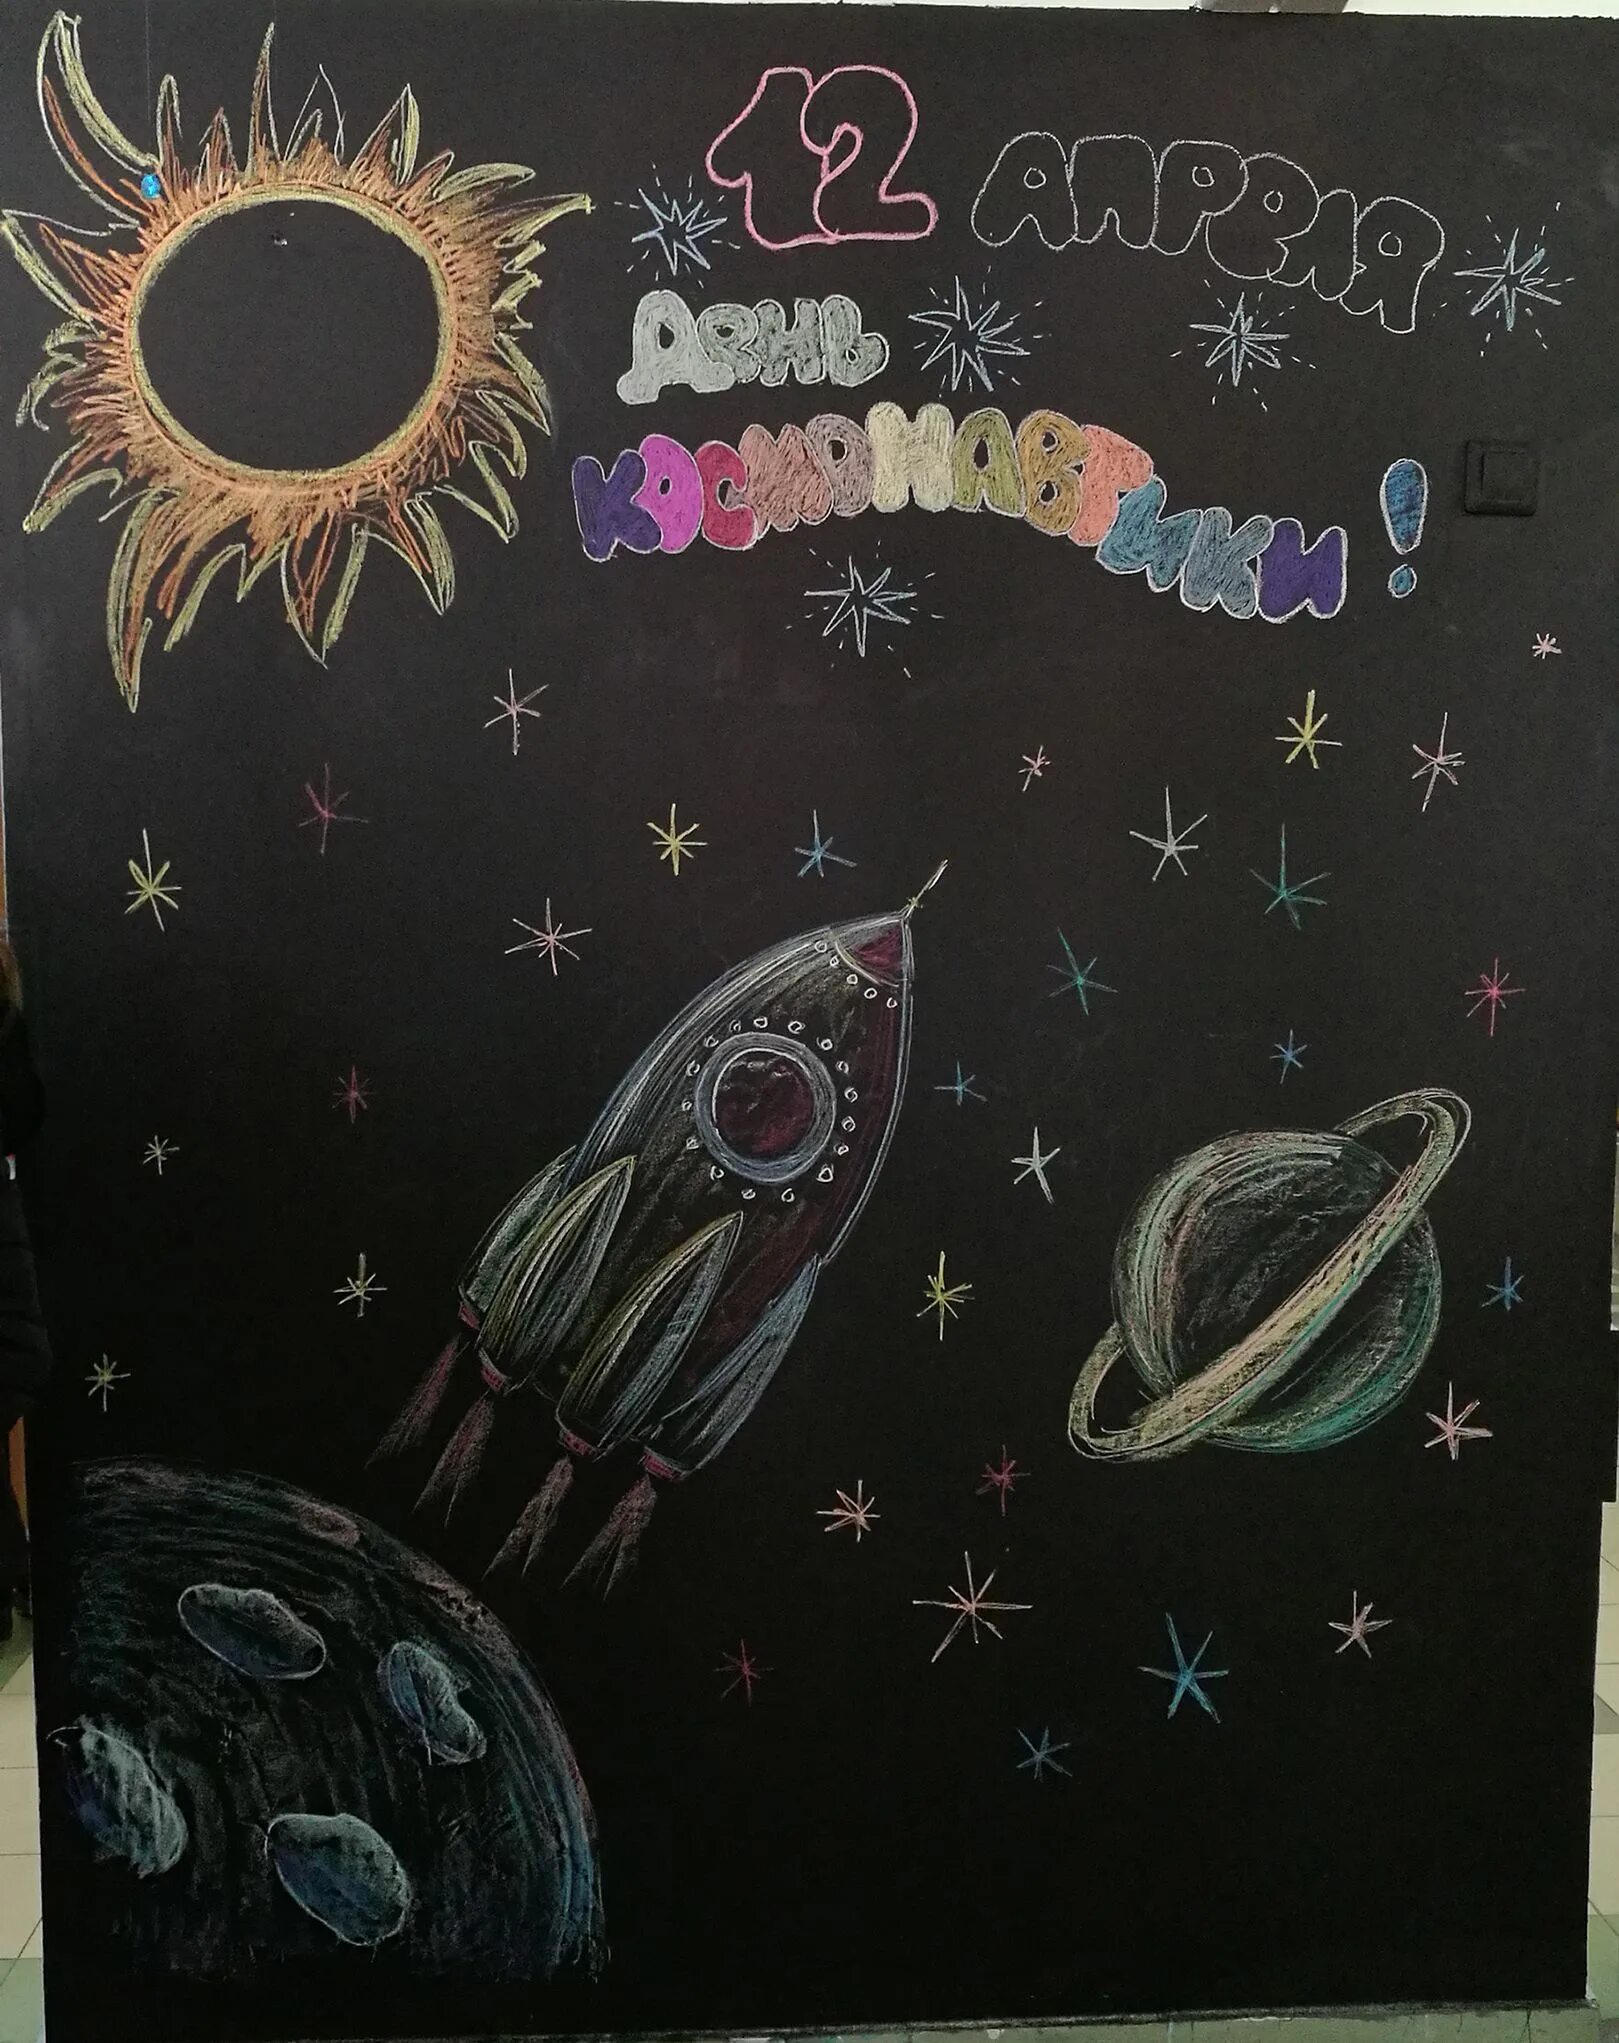 12 апреля
День
космонавтики!